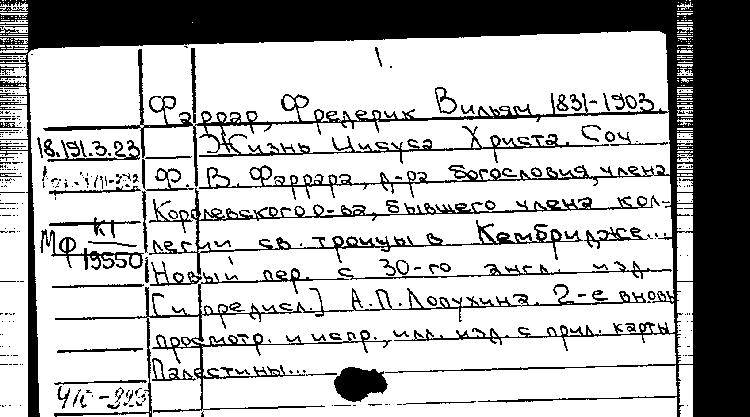 1.
Фаррар, Фредерик Вильям, 1831-1903.
18.191.3.23
Жизнь Иисуса Христа. Соч.
Ф. В. Фаррара, д-ра богословия, члена
Королевского о-ва, бывшего члена кол-
МФ К1/19550
легии св. троицы в Кембридже...
Новый пер. с 30-го англ. изд.
[и предисл.] А.П.Лопухина. 2-е вновь
просмотр. и испр., илл. изд. с прил. карты
Палестины...